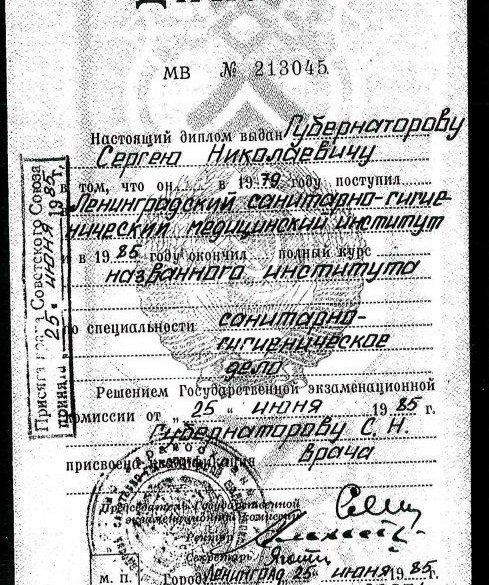 МВ № 213045
Настоящий диплом выдан Губернаторову
Сергею Николаевичу
в том, что он в 1979 году поступил
Ленинградский санитарно-гигие-
нический медицинский институт
и в 1985 году окончил полный курс
названного института
по специальности санитарно-
гигиеническое
дело
Решением Государственной экзаменационной
комиссии от „25“ июня 1985 г.
Губернаторову С. Н.
присвоена квалификация врача
Председатель Государственной
экзаменационной комиссии
Ректор
Секретарь
М. П. Город Ленинград 25 июня 1985 г.
Присяга врача Советского Союза
принята „25“ июня 1985 г.